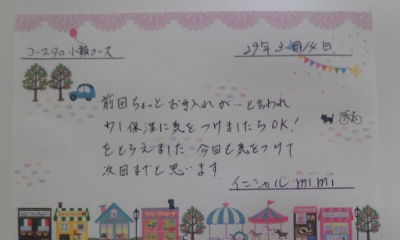 コース90 小顔コース
29年3月14日
前回ちょっとお手入れが…と言われ
少し保湿に気をつけましたらOK!
をもらえました 今回も気をつけて
次回までと思います
イニシャル mimi